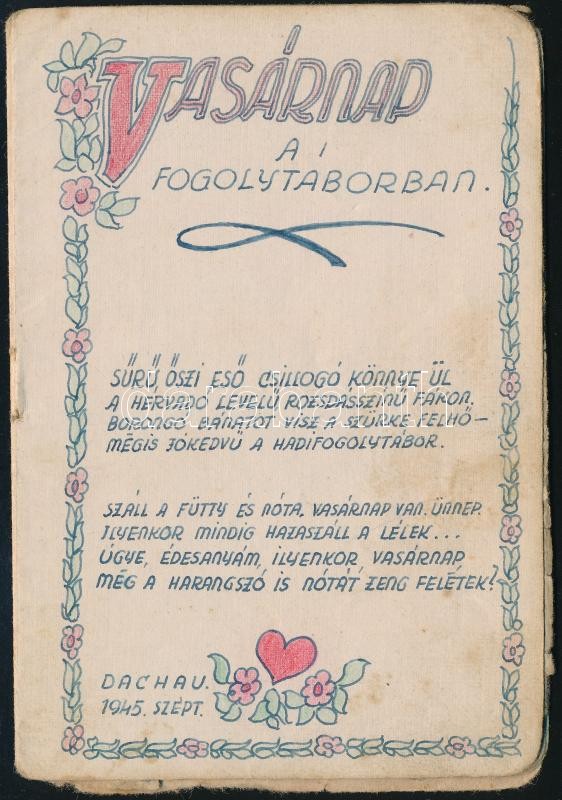 VASÁRNAP
A
FOGOLYTÁBORBAN.
SŰRŰ ŐSZI ESŐ CSILLOGÓ KÖNNYE ÜL
A HERVADÓ LEVELŰ ROZSDASSZINŰ FÁKON.
BORONGÓ BÁNATOT VISZ A SZÜRKE FELHŐ –
MÉGIS JÓKEDVŰ A HADIFOGOLYTÁBOR.
SZÁLL A FÜTTY ÉS NÓTA. VASÁRNAP VAN. ÜNNEP.
ILYENKOR MINDIG HAZASZÁLL A LÉLEK...
ÚGYE, ÉDESANYÁM, ILYENKOR, VASÁRNAP
MÉG A HARANGSZÓ IS NÓTÁT ZENG FELÉTEK?
DACHAU.
1945. SZEPT.